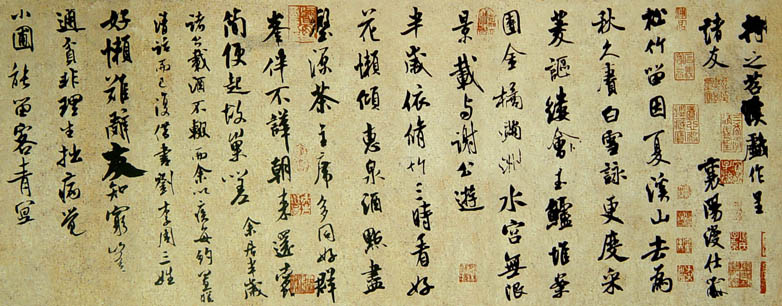 將之苕溪戲作呈
諸友 襄陽漫仕黻
松竹留因夏溪山去為
秋久賡白雪詠更度采
菱謳縷會玉鱸堆案
團金橘滿洲水宮無限
景載與謝公遊
半歲依脩竹三時看好
花懶傾惠泉酒點盡
壑源茶主席多同好群
峯伴不譁朝來還蠹
簡便起故巢嗟 余居半歲
諸公載酒不輟而余以疾每約置膳
清話而已復借書劉李周三姓
好懶難辭友知窮豈
通貧非理生拙病覺
小圃能留客青冥